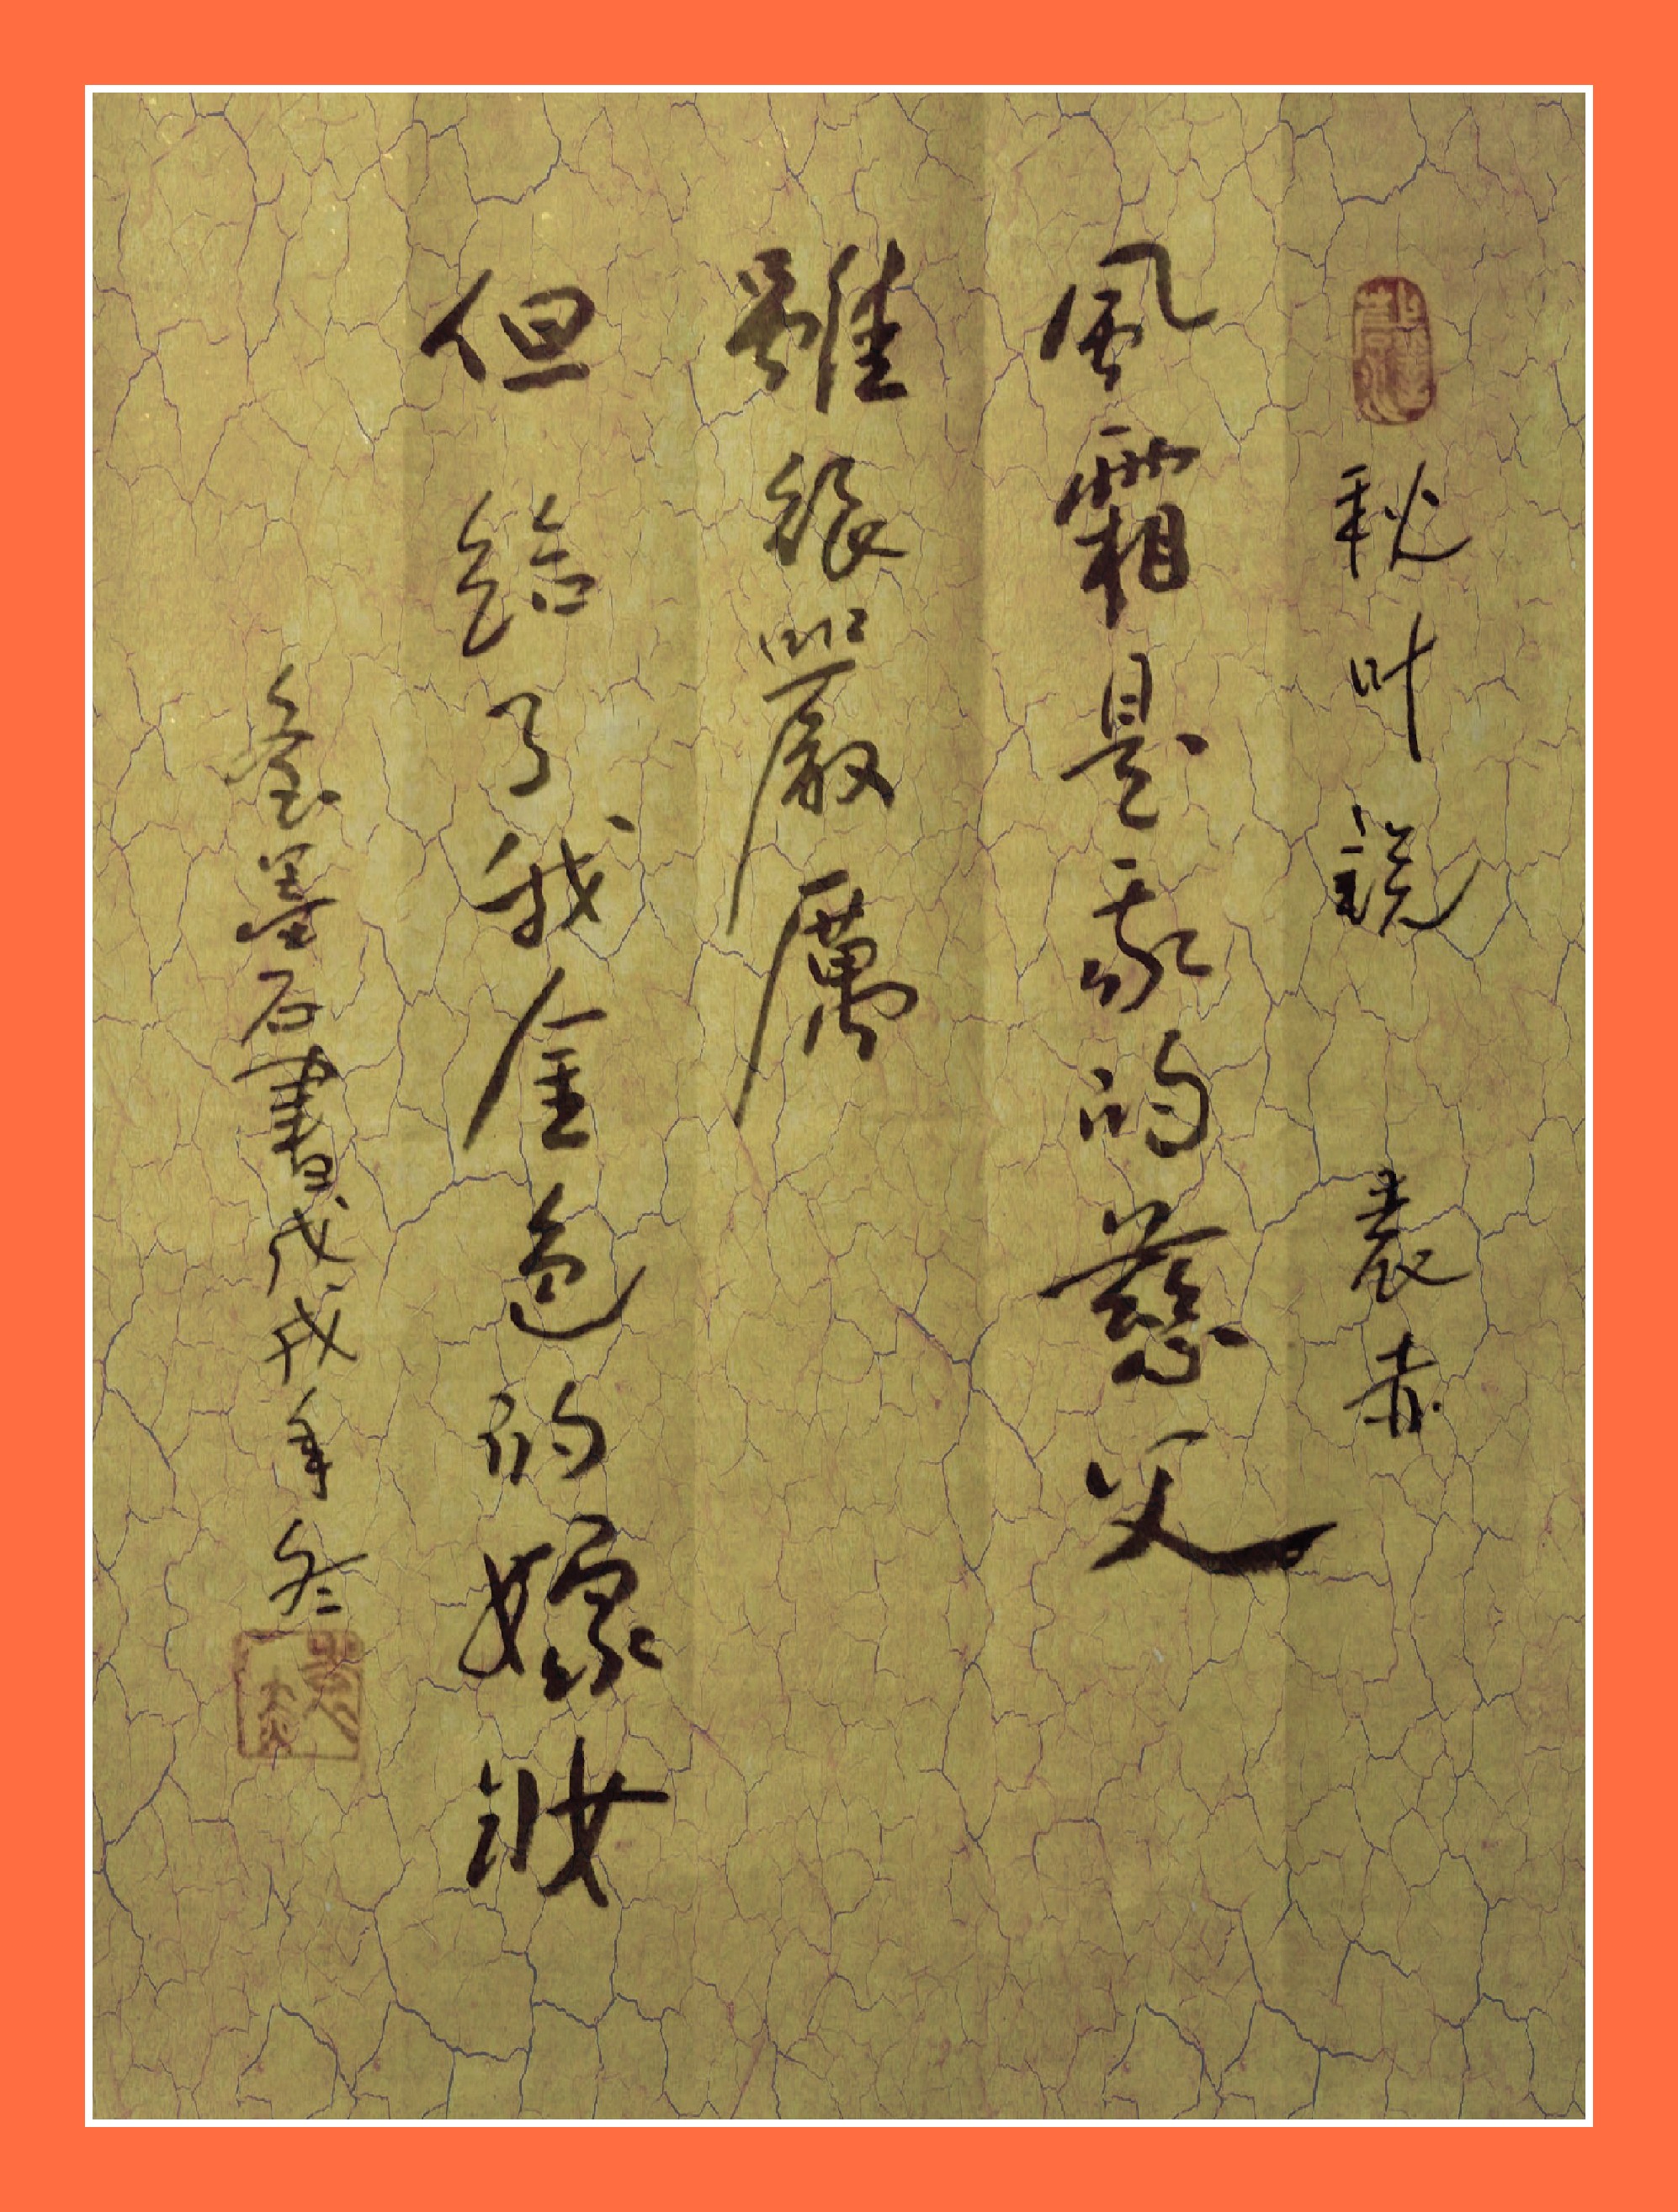 秋叶説 袁赤
風霜是我的慈父
雖很嚴厲
但給了我金色的嫁妝
墨石書戊戌年冬